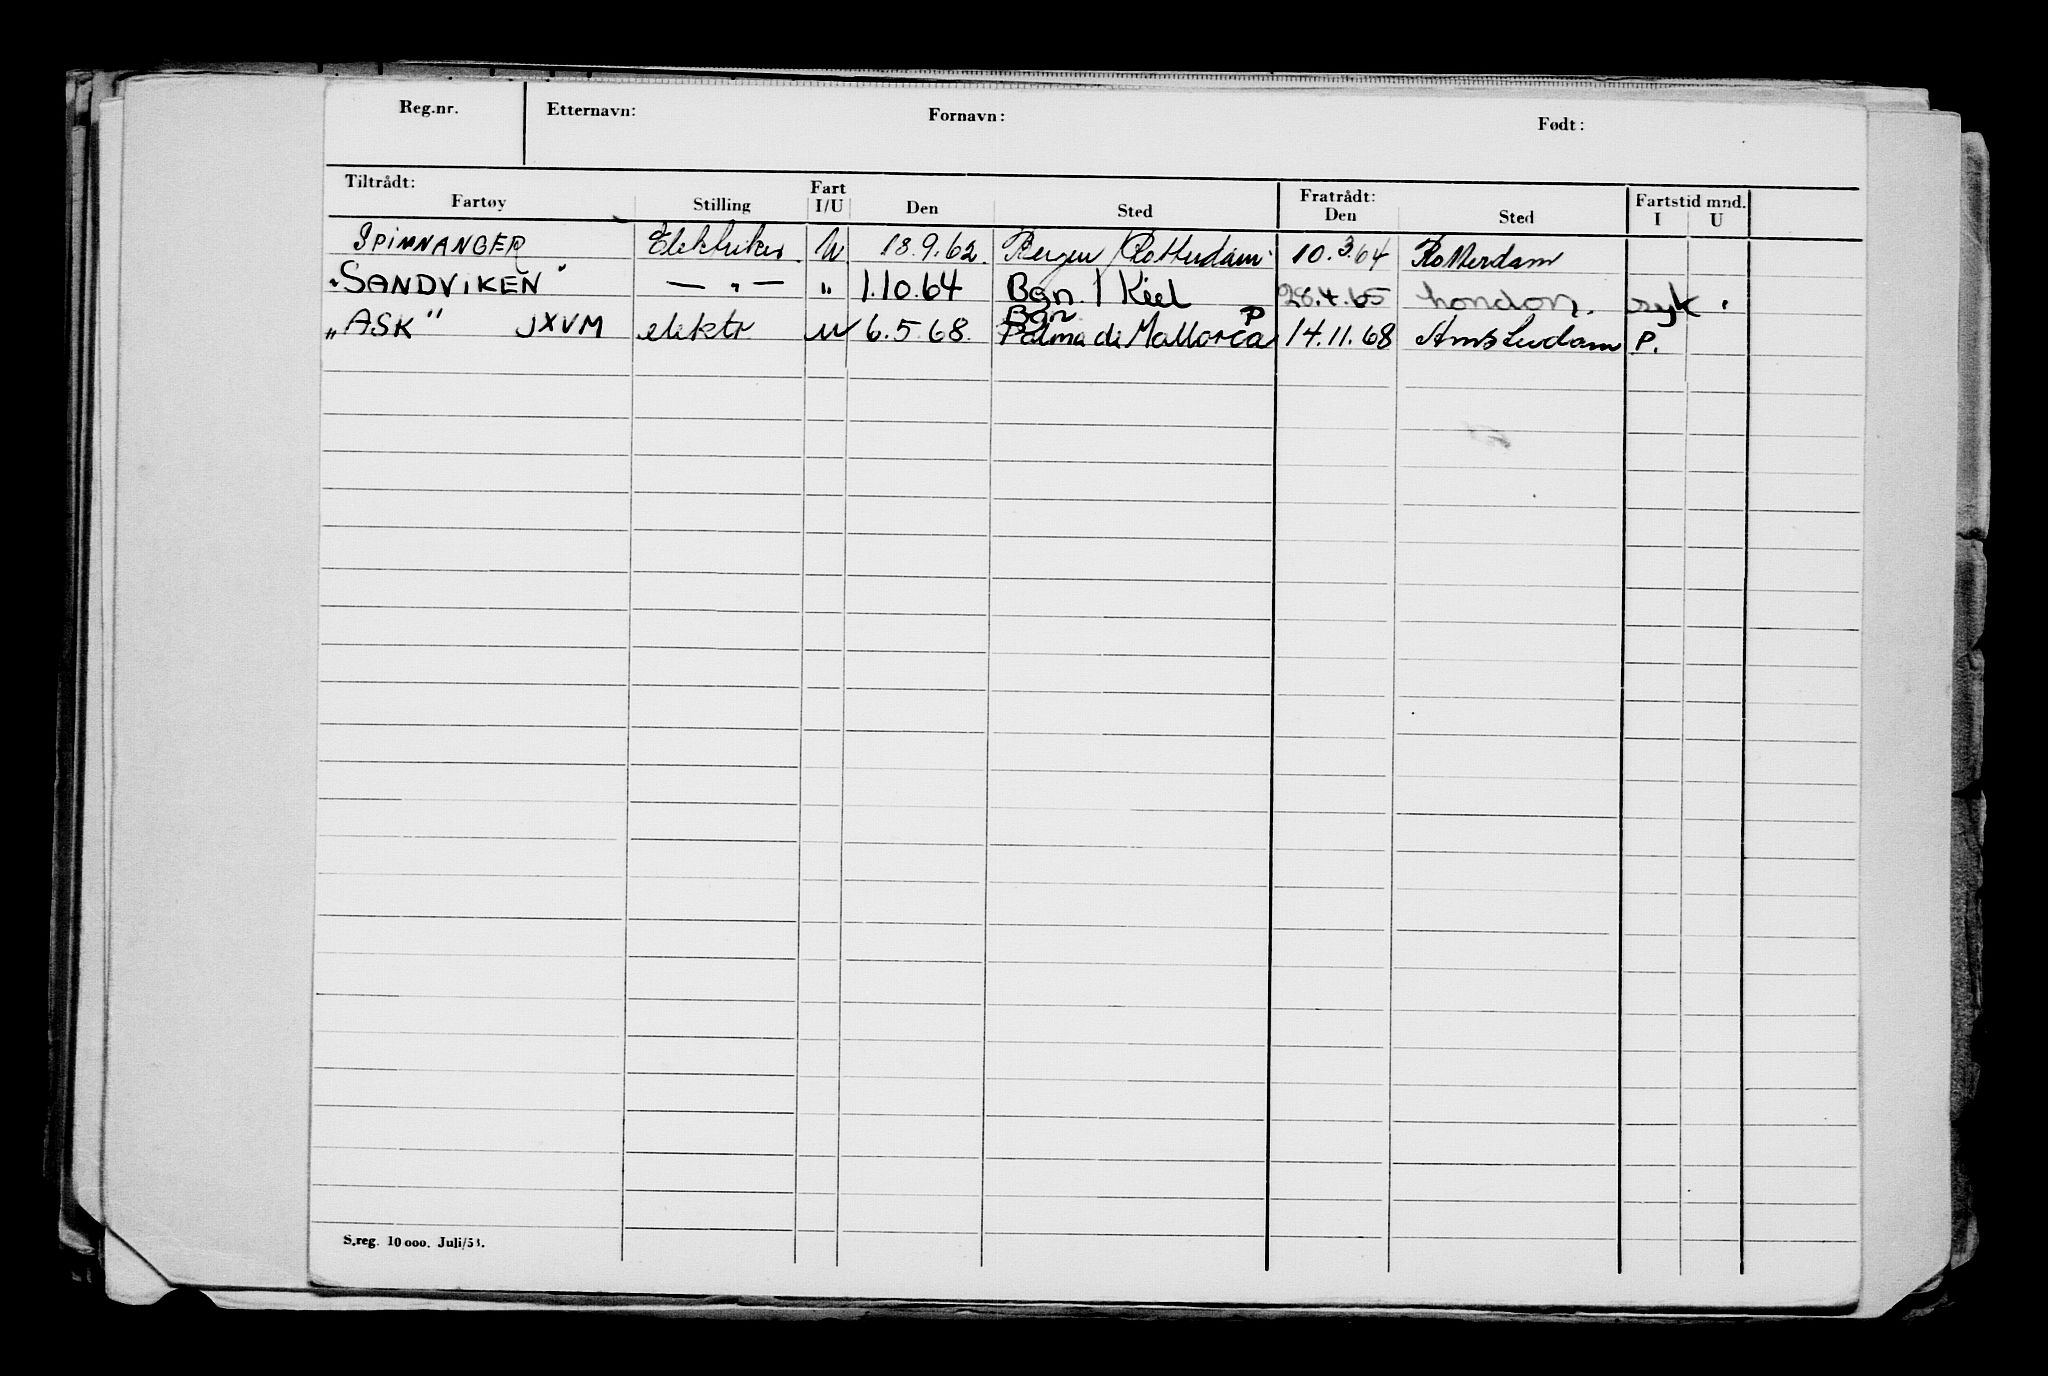 Reg.nr. Etternavn: Fornavn: Født:
Tiltrådt: Fartøy Stilling Fart I/U Den Sted Fratrådt: Den Sted Fartstid mnd. I U
SPINNANGER Elektriker U 18.9.62. Bergen/Rotterdam 10.3.64 Rotterdam
"SANDVIKEN" — " — " 1.10.64 Bgn / Kiel 28.4.65 London. syk.
Bgn P
"ASK" JXVM elektr U 6.5.68. Palma de Mallorca 14.11.68 Amsterdam P.
S.reg. 10 000. Juli/53.